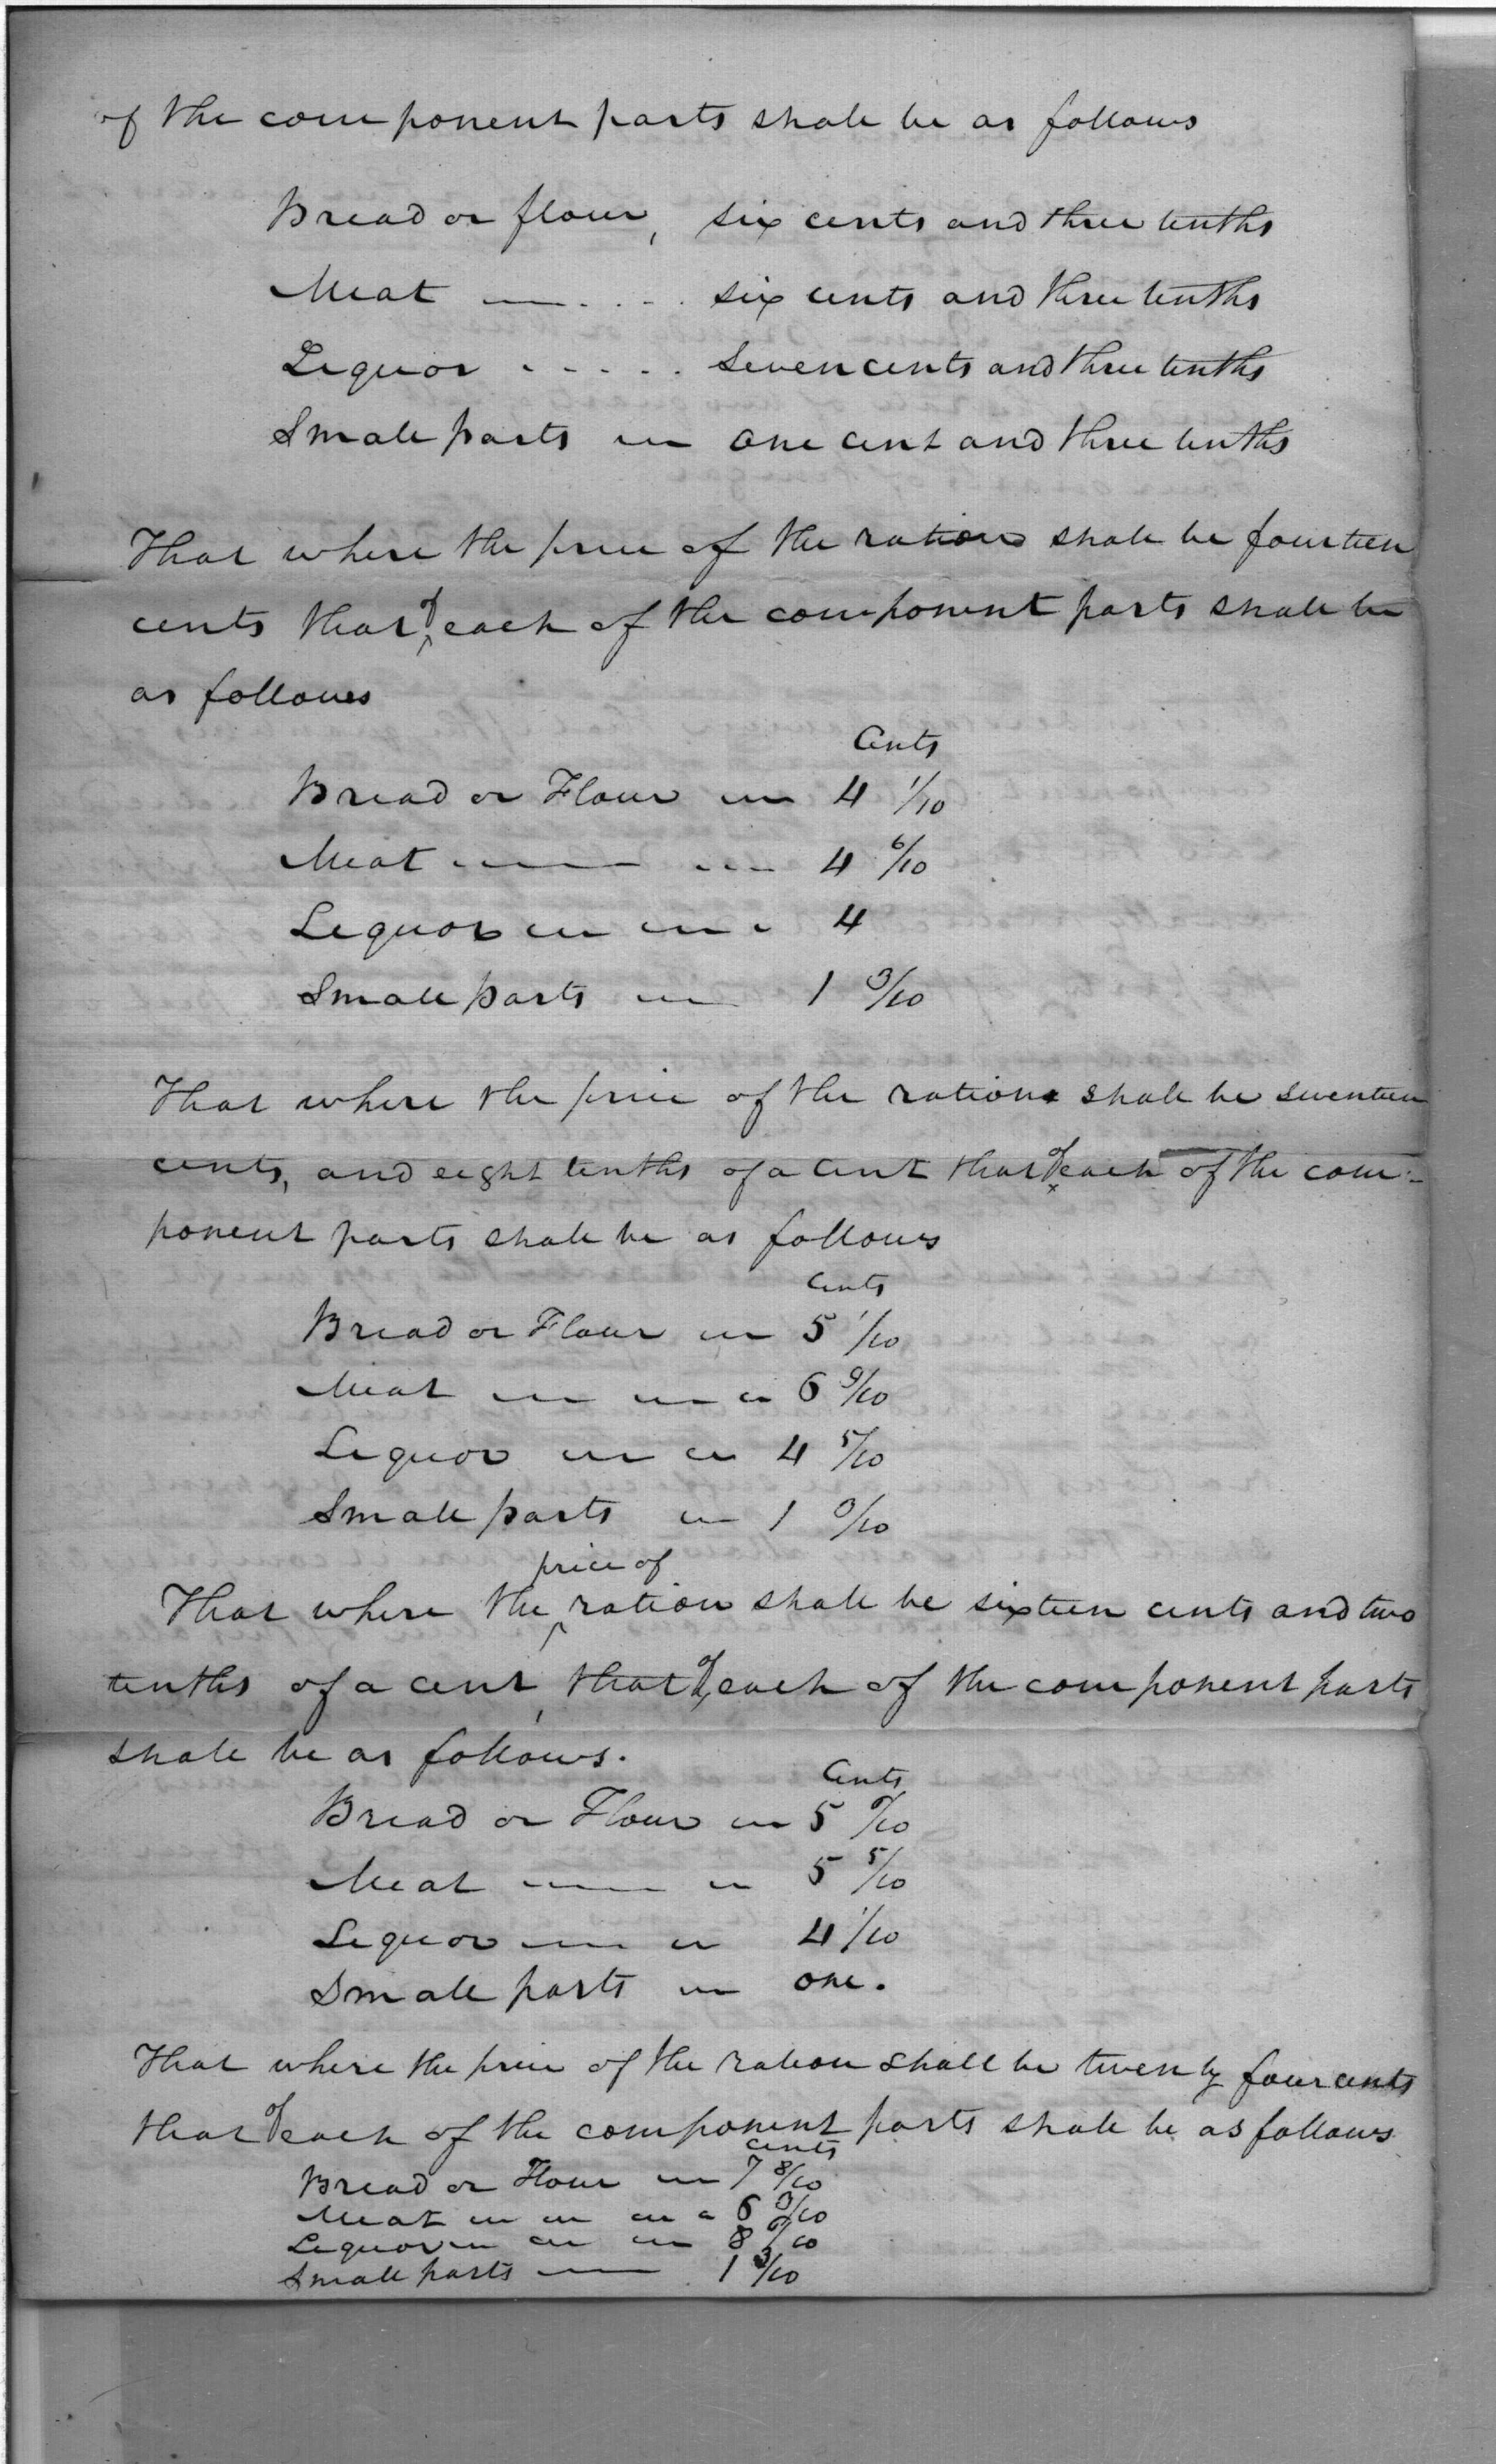 of the component parts shall be as follows
Bread or flour, six cents and three tenths
Meat — . . . . six cents and three tenths
Liquor . . . . . seven cents and three tenths
Small parts — one cent and three tenths
That where the price of the ration shall be fourteen
cents that of each of the component parts shall be
as follows
Cents
Bread or Flour — 4 1/10
Meat — — 4 6/10
Liquor — — 4
Small parts — 1 3/10
That where the price of the ration shall be seventeen
cents, and eight tenths of a cent that of each of the com-
ponent parts shall be as follows
Cents
Bread or Flour — 5 1/10
Meat — — 6 9/10
Liquor — — 4 5/10
Small parts — 1 3/10
That where the price of ration shall be sixteen cents and two
tenths of a cent, that of each of the component parts
shall be as follows.
Cents
Bread or Flour — 5 6/10
Meat — — 5 5/10
Liquor — — 4 1/10
Small parts — one.
That where the price of the ration shall be twenty four cents
that of each of the component parts shall be as follows
cents
Bread or Flour — 7 8/10
Meat — — 6 3/10
Liquor — — 8 6/10
Small parts — 1 3/10